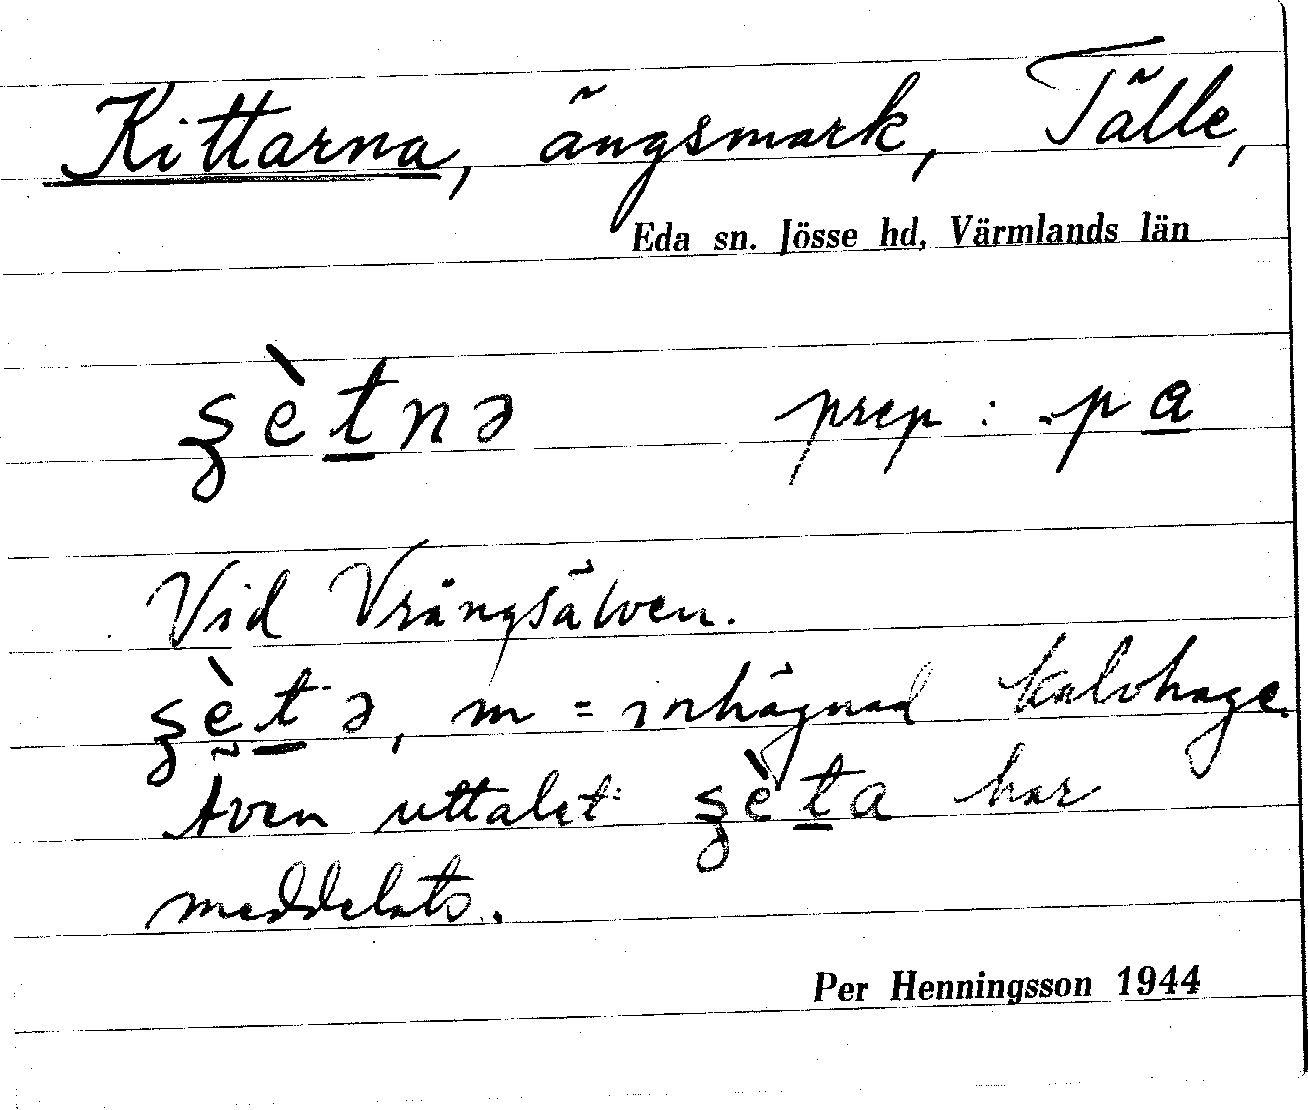 Kittarna, ängsmark, Tälle,
Eda sn. Jösse hd, Värmlands län
ʂèt̲nə prep: pa̲
Vid Vrångsälven.
ʂèt̲ə, m = inhägnad kalvhage.
Även uttalet: ʂèt̲a har
meddelats.
Per Henningsson 1944